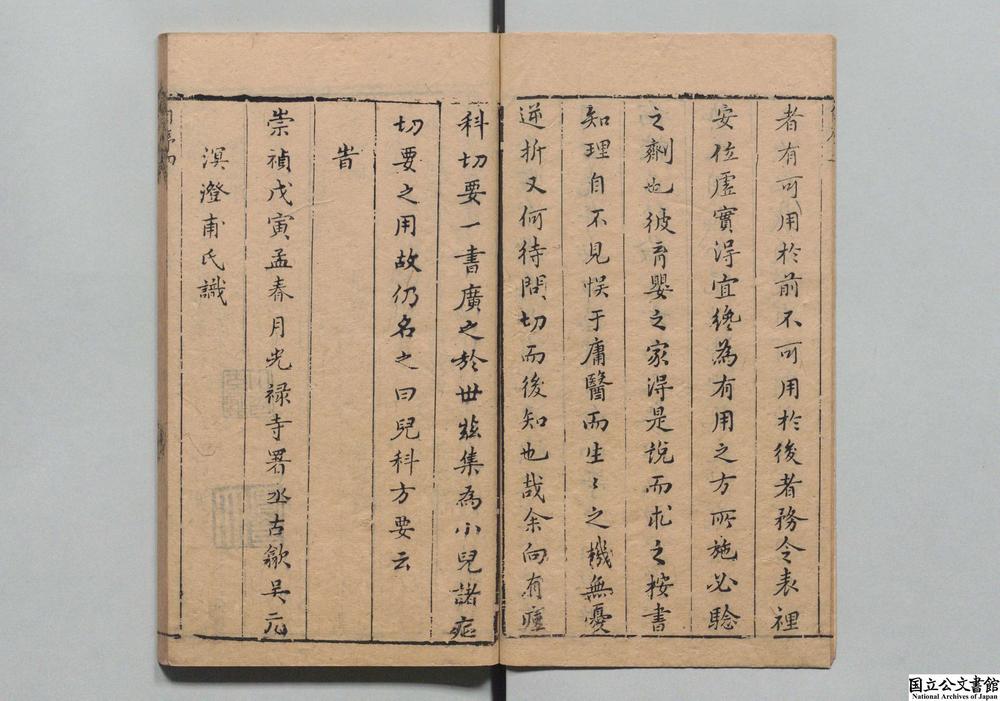 者有可用於前不可用於後者務令表裡
安位虛實得宜纔為有用之方所施必驗
之劑也彼育嬰之家得是說而求之按書
知理自不見悞于庸醫而生〻之機無憂
逆折又何待問切而後知也哉余向有痘
科切要一書廣之於世茲集為小兒諸症
切要之用故仍名之曰兒科方要云
旹
崇禎戊寅孟春月光祿寺署丞古歙吳元
溟澄甫氏識
国立公文書館
National Archives of Japan